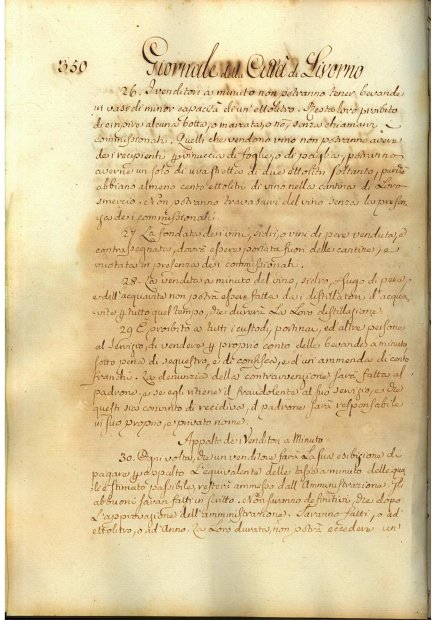 350 Giornale della Città di Livorno
26. I venditori a minuto non potranno tener bevande
in vase di minor capacità di un' ettolitro. Resta loro proibito
di empire alcuna botte, o marcata, o nò, senza chiamarvi i
commissionati. Quelli che vendono vino non potranno avere
dei recipienti guarniti di foglie, o di paglia, potranno
averne un solo di una stretta di due ettolitri soltanto, purchè
abbiano almeno cento ettolitri di vino nella cantina di Loro
smercio. Non potranno travasarsi del vino senza la presen-
za dei commissionati.
27. La fondata dei vini, sidri, o vini di pere venduta, e
contrassegnata, dovrà essere portata fuori delle cantine, e
vuotata in presenza dei commissionati.
28. La vendita a minuto del vino, sidro, sugo di pera,
e dell'acquavite non potrà essere fatta dai distillatori d'acqua-
vite per tutto quel tempo, che durerà La Loro distillazione.
29 È proibito a tutti i custodi, portinai, ed altre persone
al servizio, di vendere per proprio conto delle bevande a minuto,
sotto pena di sequestro, e di confisca, e d'un'ammenda di cento
franchi. La denunzia della contravvenzione sarà fatta al
padrone, e se egli ritiene il fraudolente al suo servizio, e che
questi sia convinto di recidiva, il padrone sarà responsabile
in suo proprio, e privato nome.
Appalto dei Venditori a Minuto
30. Ogni volta, che un venditore farà La sua esibizione di
pagare per appalto L'equivalente delle tasse a minuto delle qua-
li è stimato passibile, resterà ammesso dall'Amministrazione. Gli
abbuoni saran fatti in scritto. Non saranno definitivi, che dopo
L'approvazione dell'amministrazione. Saranno fatti, o ad
ettolitro, o ad Anno. La Loro durata, non potrà eccedere un'